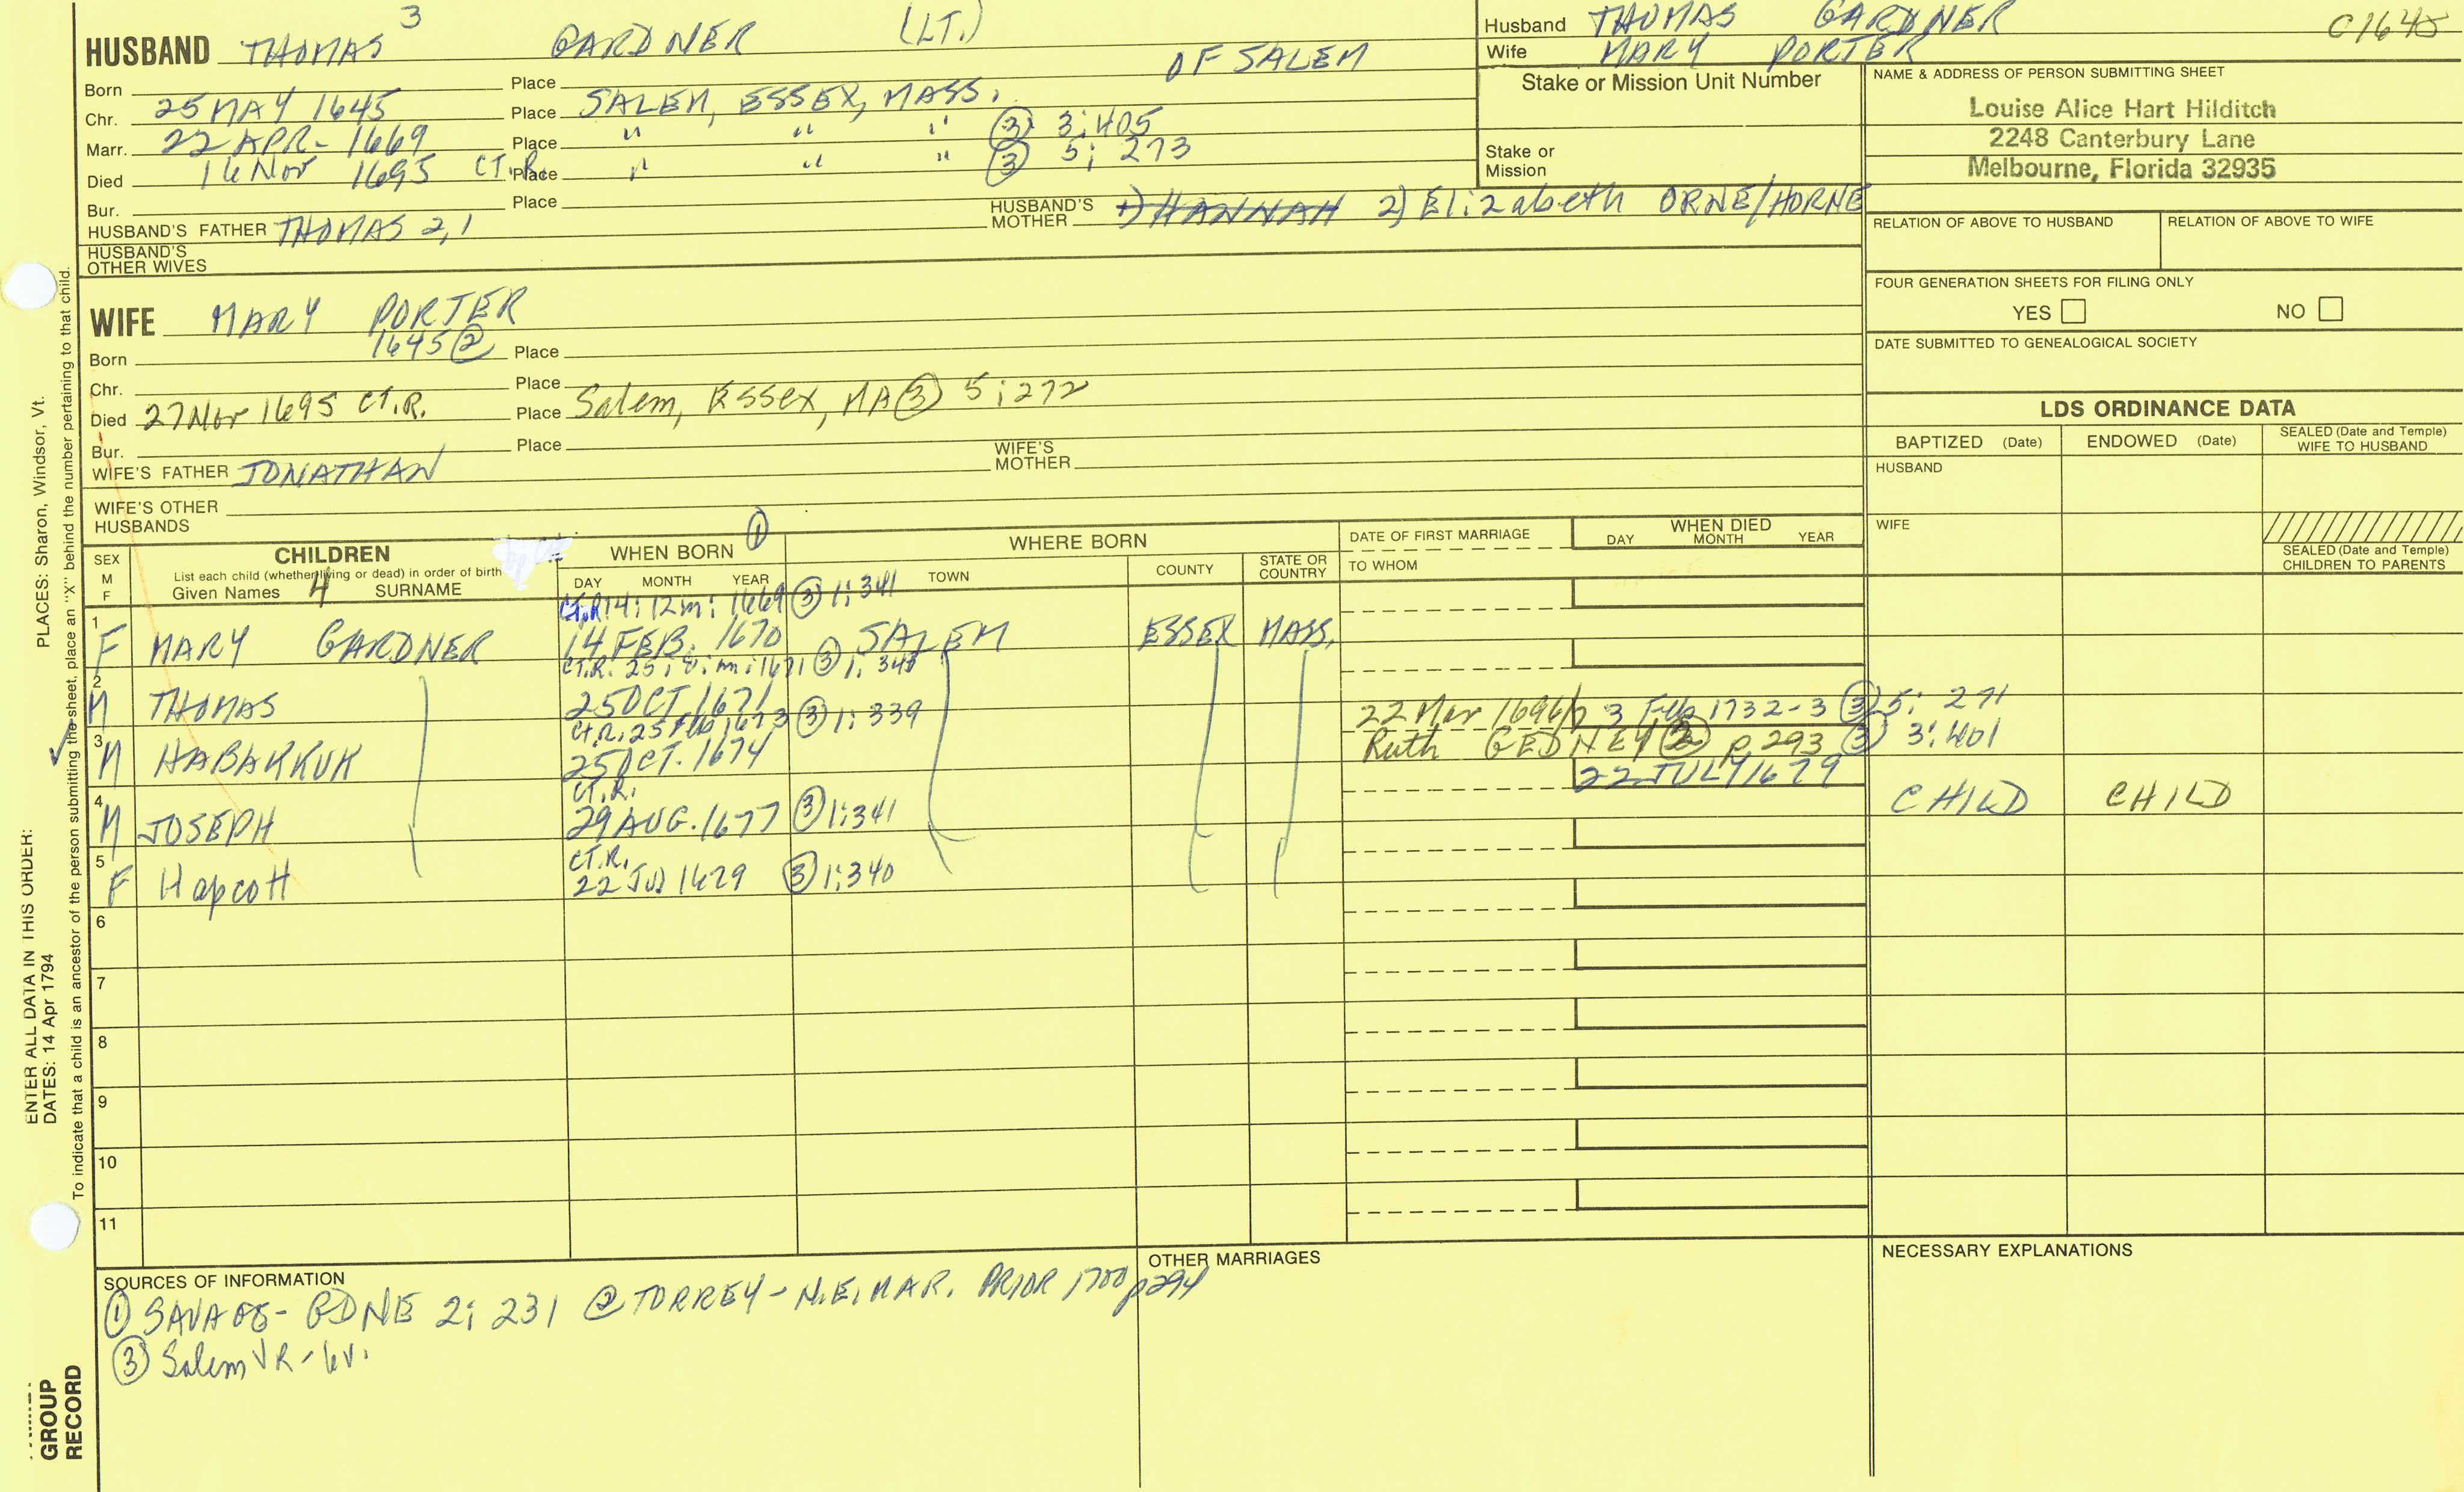 3
HUSBAND THOMAS GARDNER (LT.) OF SALEM
Born Place
Chr. 25 MAY 1645 Place SALEM, ESSEX, MASS.
Marr. 22 APR- 1669 Place " " " (3) 3:405
Died 16 Nov 1695 CT.R. Place " " " (3) 5; 273
Bur. Place
HUSBAND'S FATHER THOMAS 2,1 HUSBAND'S MOTHER 1) HANNAH 2) Elizabeth ORNE/HORNE
HUSBAND'S OTHER WIVES
Husband THOMAS GARDNER
Wife MARY PORTER
C1645
Stake or Mission Unit Number
Stake or Mission
NAME & ADDRESS OF PERSON SUBMITTING SHEET
Louise Alice Hart Hilditch
2248 Canterbury Lane
Melbourne, Florida 32935
RELATION OF ABOVE TO HUSBAND RELATION OF ABOVE TO WIFE
FOUR GENERATION SHEETS FOR FILING ONLY
YES NO
DATE SUBMITTED TO GENEALOGICAL SOCIETY
WIFE MARY PORTER
Born 1645 (2) Place
Chr. Place
Died 27 Nov 1695 CT.R. Place Salem, Essex, MA (3) 5:272
Bur. Place
WIFE'S FATHER JONATHAN WIFE'S MOTHER
WIFE'S OTHER HUSBANDS
LDS ORDINANCE DATA
BAPTIZED (Date) ENDOWED (Date) SEALED (Date and Temple) WIFE TO HUSBAND
HUSBAND
WIFE
SEALED (Date and Temple) CHILDREN TO PARENTS
SEX M F
CHILDREN
List each child (whether living or dead) in order of birth
Given Names 4 SURNAME
WHEN BORN (1)
DAY MONTH YEAR
WHERE BORN
TOWN COUNTY STATE OR COUNTRY
DATE OF FIRST MARRIAGE
TO WHOM
WHEN DIED
DAY MONTH YEAR
CT.R 14: 12m: 1669 (3) 1:341
1 F MARY GARDNER 14 FEB. 1670 SALEM ESSEX MASS.
CT.R. 25; 8: m: 1671 (3) 1: 341
2 M THOMAS 25 OCT. 1671
22 Mar 1696/7 3 Feb 1732-3 (3) 5: 271
Ct.R. 25 Feb 1673 (3) 1: 339
3 M HABAKKUK 25 OCT. 1674
Ruth GEDNEY (2) p. 293 (3) 3:401
22 JULY 1679
CT.R.
4 M JOSEPH 29 AUG. 1677 (3) 1:341 CHILD CHILD
CT.R.
5 F Hapcott 22 Jul 1679 (3) 1:340
6
7
8
9
10
11
SOURCES OF INFORMATION
(1) SAVAGE- GDNE 2: 231 (2) TORREY- N.E. MAR. PRIOR 1700 p294
(3) Salem VR- 6v.
OTHER MARRIAGES
NECESSARY EXPLANATIONS
PLACES: Sharon, Windsor, Vt.
To indicate that a child is an ancestor of the person submitting the sheet, place an "X" behind the number pertaining to that child.
ENTER ALL DATA IN THIS ORDER:
DATES: 14 Apr 1794
GROUP
RECORD